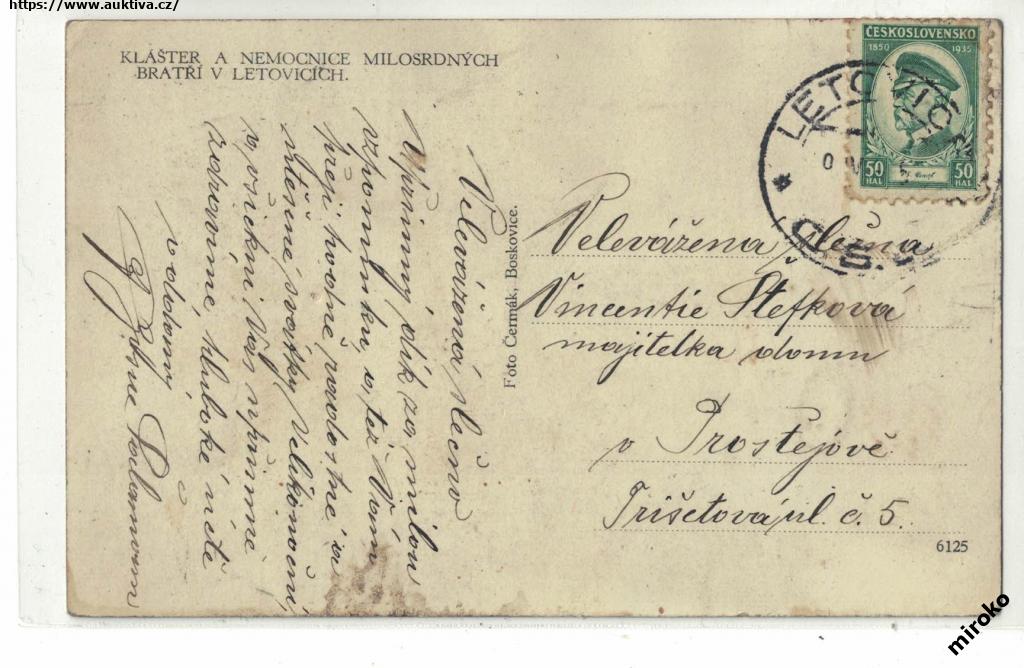 https://www.auktiva.cz/
KLÁŠTER A NEMOCNICE MILOSRDNÝCH
BRATŘÍ V LETOVICÍCH.
Velevážená slečno
Upřímný dík za milou
vzpomínku, a též Vám
přeji hodně radostné a
utěšené svátky Velikonoční,
a všickni Vás upřímně
zdravíme, hluboké úctě
oddaný
Foto Čermák, Boskovice.
ČESKOSLOVENSKO
1850 1935
50 HAL
50 HAL
LETOVICE
Č.S.
Velevážena slečna
Vincentie Štefková
majitelka domu
v Prostějově
Trišetová ul. č. 5.
6125
miroko